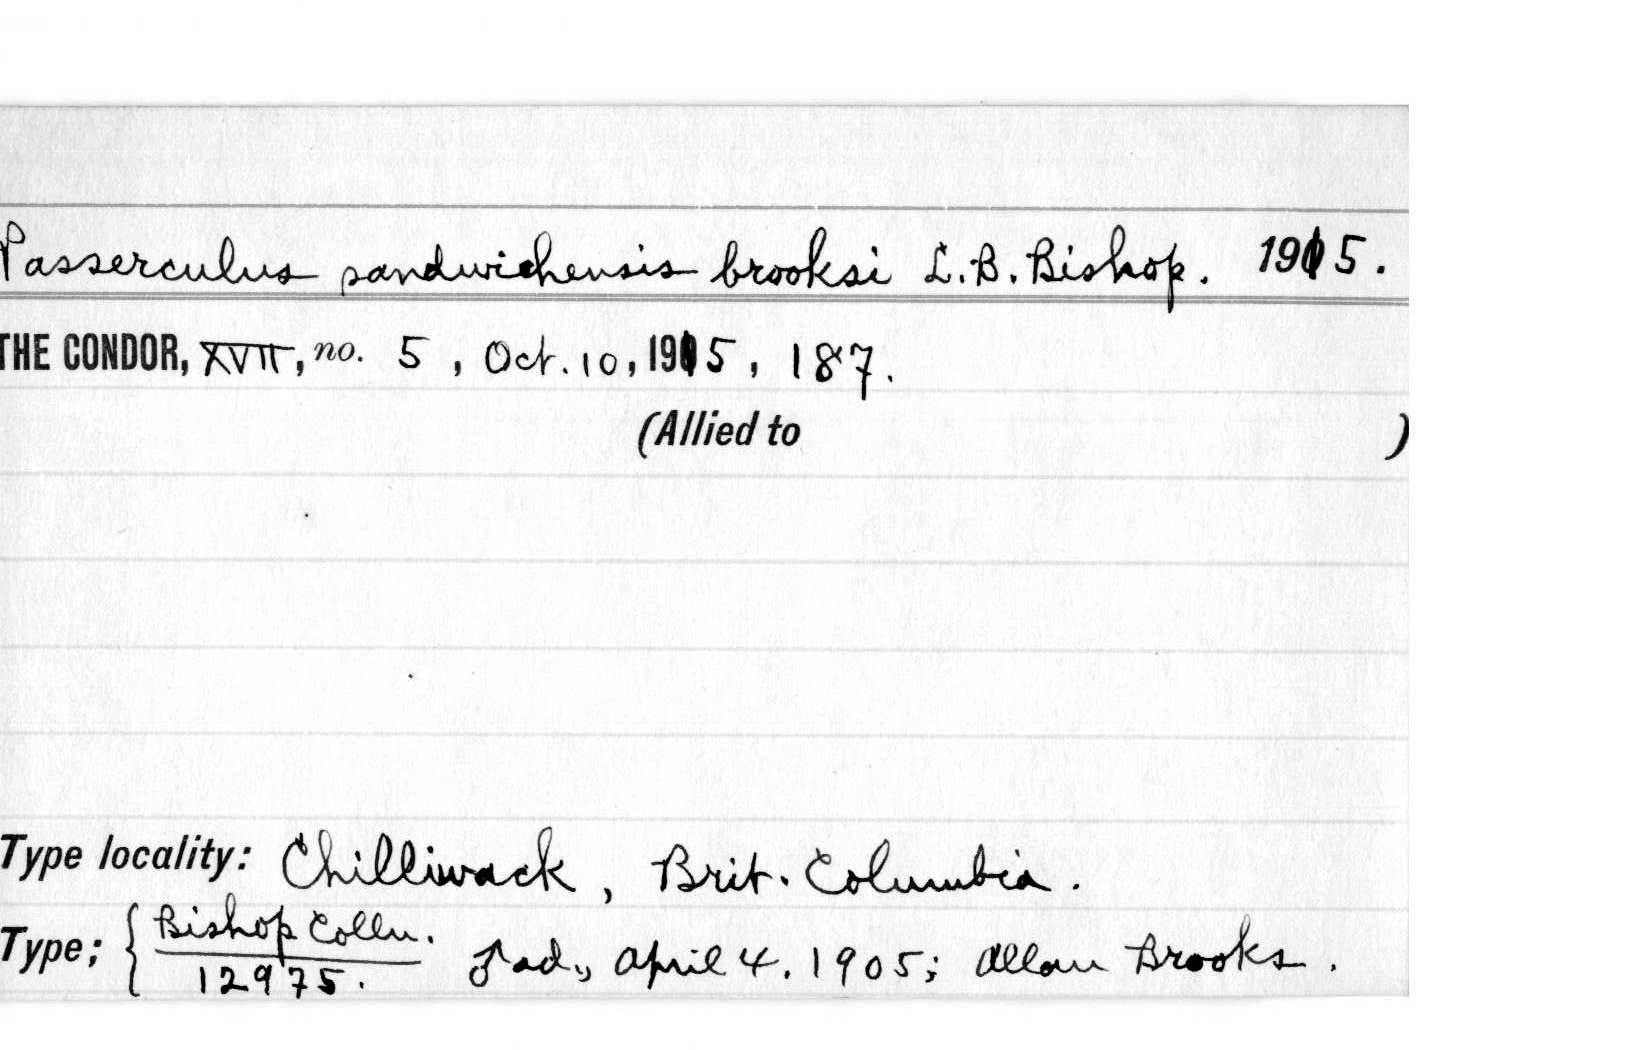 Passerculus sandwichensis brooksi L.B. Bishop. 1915.
THE CONDOR, XVII, no. 5, Oct. 10, 1915, 187.
(Allied to )
Type locality: Chilliwack, Brit. Columbia.
Type; { Bishop Colln.
12975. ♂ ad., April 4. 1905; Allan Brooks.